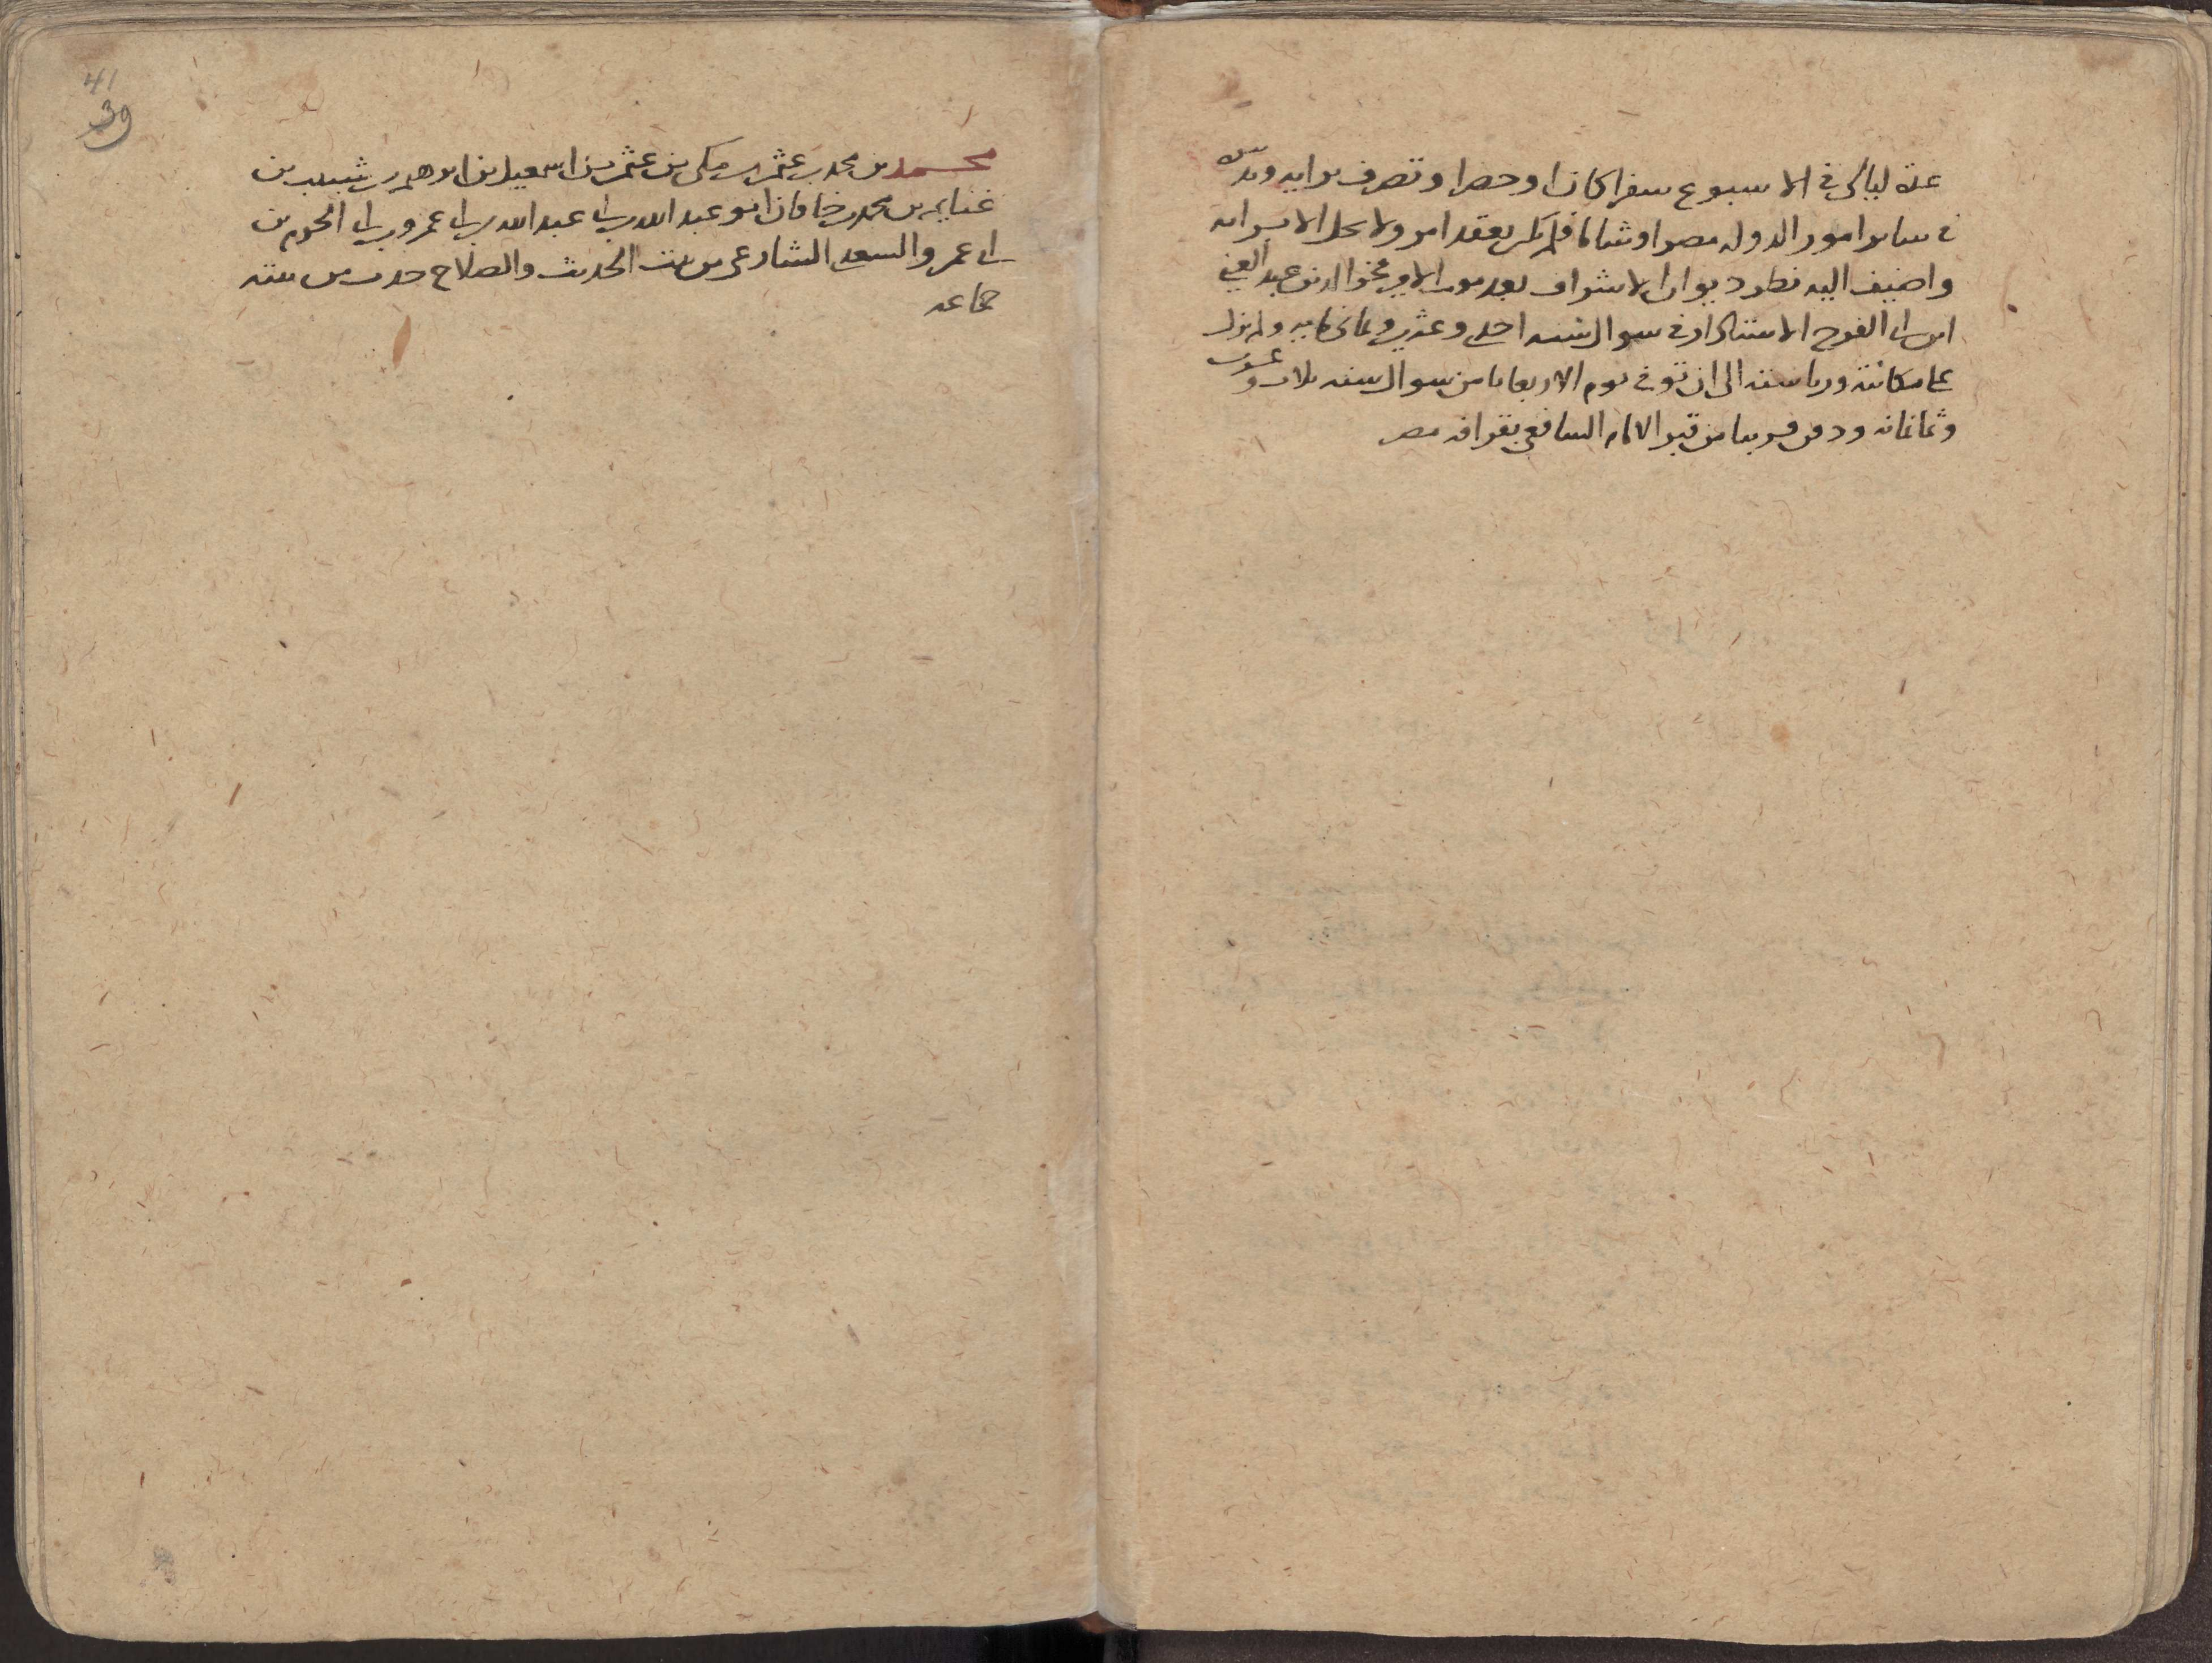 عدة ليالي في الاسبوع سفرا كان او حضرا وتصرف برايه وتدبيره
في ساير امور الدوله مصرا وشاما فلم يكن يعقد امر ولا يحل الا برايه
واضيف اليه نظر ديوان الاشراف بعد موت الامير فخر الدين عبد الغني
ابن ابي الفرج الاستادار في شوال سنه احدى وعشرين وثمانماية ولم يزل
على مكانته ورياسته الى ان توفي يوم الاربعا ثامن شوال سنه ثلاث وعشرين
وثمانمائه ودفن قريبا من قبر الامام الشافعي بقرافه مصر
41
39
محمد بن محمد بن عثمن بن مكي بن عثمن بن اسمعيل بن ابرهيم بن شبيب بن
غنايم بن محمد بن خاقان ابو عبد الله بن ابي عبد الله بن ابي عمرو بن ابي الحرم بن
ابي عمرو السعدي الشارعي من بيت الحديث والصلاح حدث من بيته
جماعه